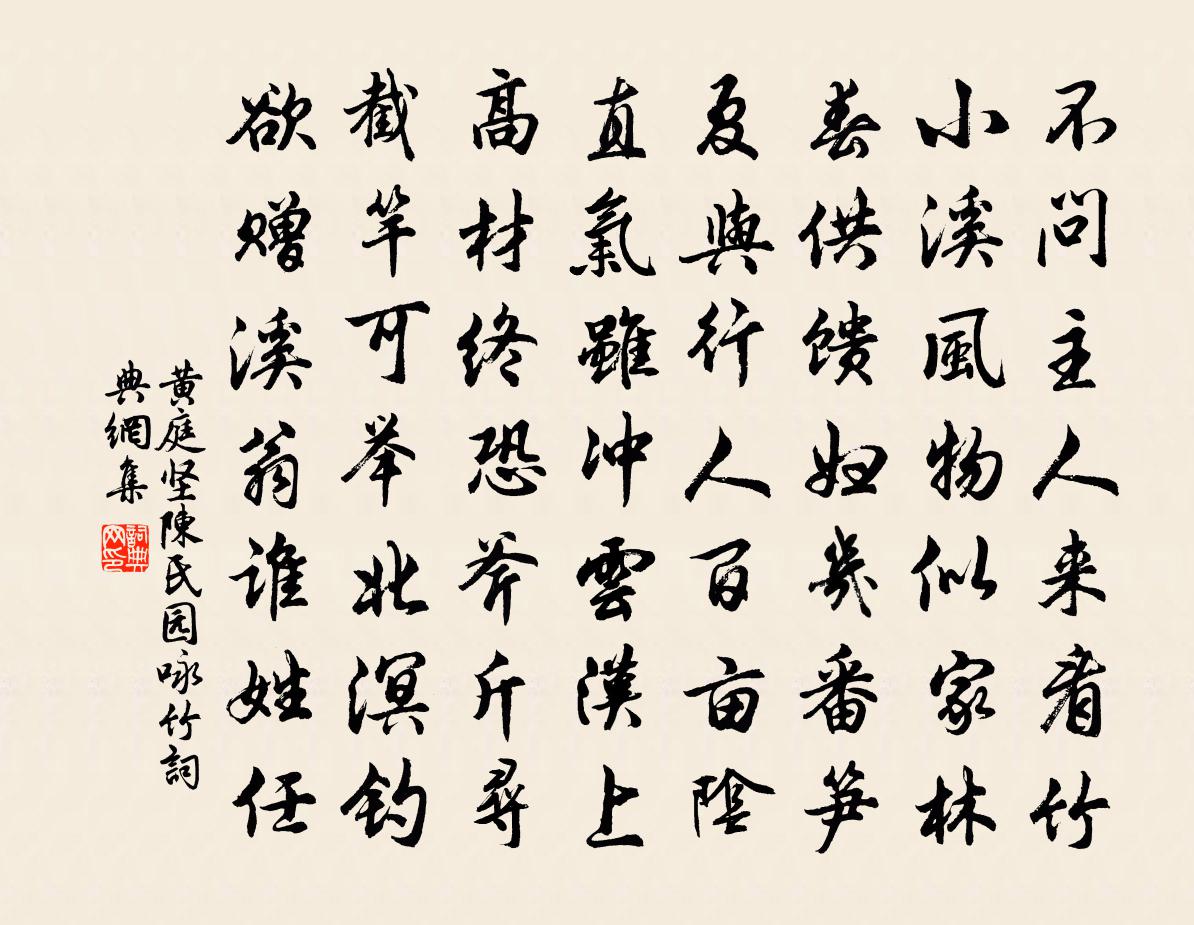 不问主人来看竹
小溪風物似家林
春供馈妇几番笋
夏與行人百亩陰
直氣雖冲雲漢上
高材终恐斧斤尋
截竿可举北溟钓
欲赠溪翁谁姓任
黄庭坚陳氏园咏竹詞
典網集
詞典网印